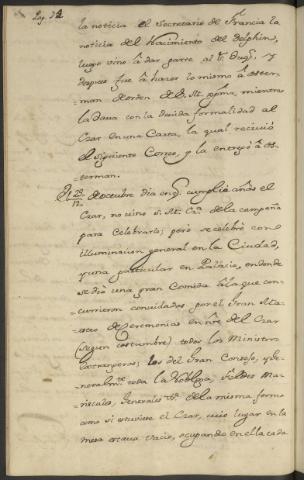 Pag. 32
la noticia el Secretario de Francia la
noticia del Nacimiento del Delphin,
luego vino à dar parte al
despues fue à hacer lo mismo à Oster-
man de orden de S. M. mientras
la dava con la devida formalidad al
Czar en una Carta, la qual recivió
el siguiente Correo, y la entregó à Os-
terman.
de octubre dia en q. cumplia años el
Czar, no vino S. M. Cza. de la campaña
para celebrarlo; pero se celebró con
illuminacion general en la Ciudad,
y una particular en Palacio, en donde
se dió una gran Comida à la que con-
currieron convidados por el Gran Ma-
estro de Ceremonias en nre. del Czar
(segun costumbre) todos los Ministros
Extrangeros; los del Gran Consejo, y Ge-
neralmte. toda la Nobleza, Feldes Ma-
riscales, Generales &a. de la misma forma
como si estuviese el Czar, cuio lugar en la
mesa estava vacio, ocupando en ella cada